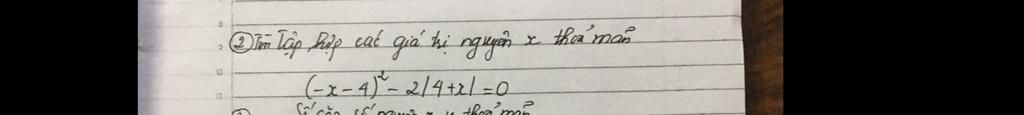 ② Tìm tập hợp các giá trị nguyên x thoả mãn
(-x-4)² - 2|4+x| = 0
thoả mãn